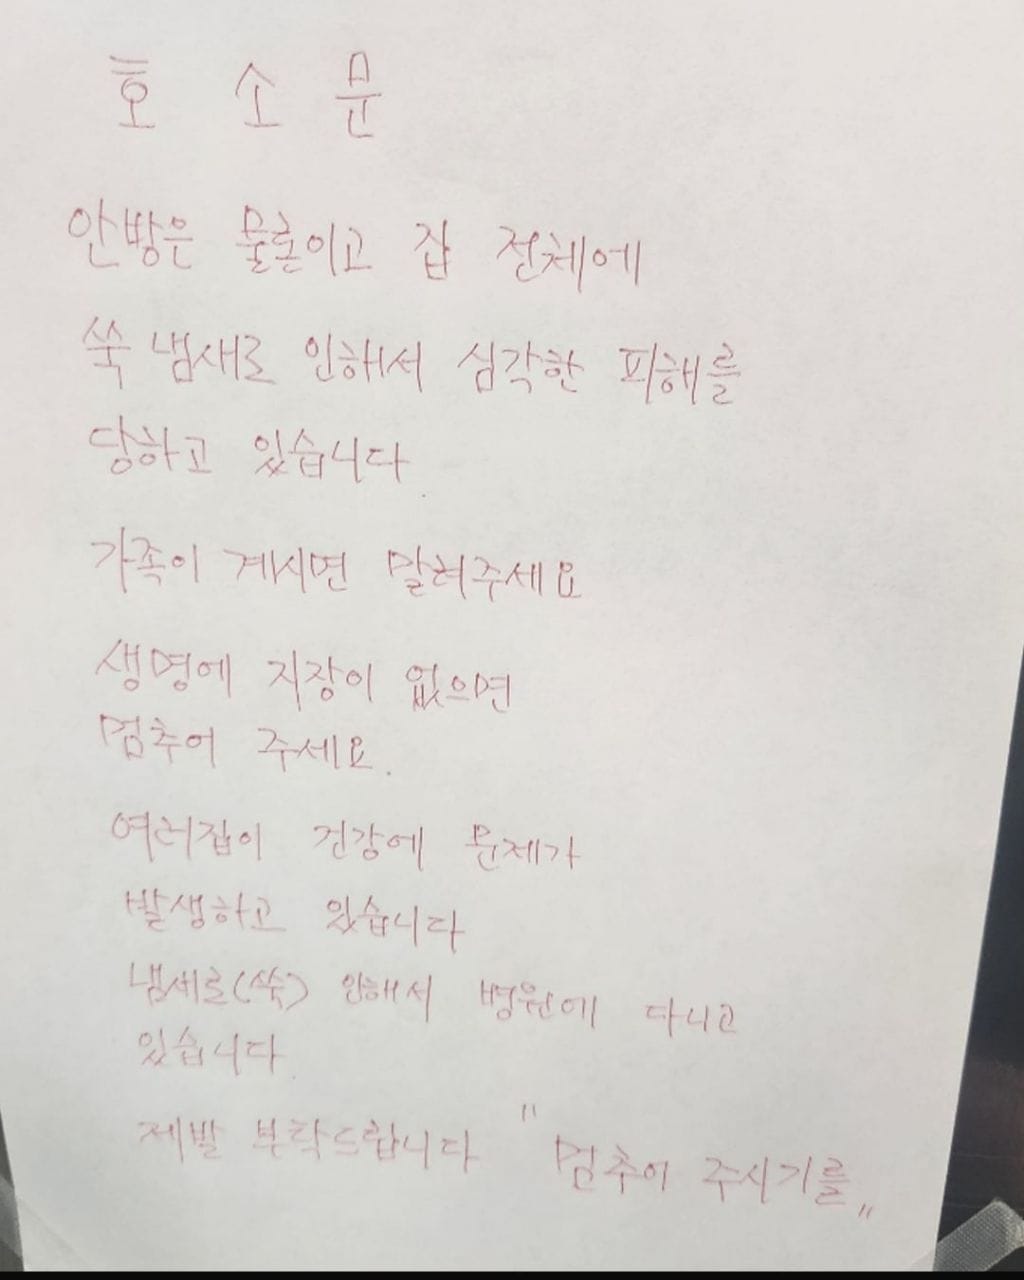 호 소 문
안방은 물론이고 집 전체에
쑥 냄새로 인해서 심각한 피해를
당하고 있습니다.
가족이 계시면 말려주세요
생명에 지장이 없으면
멈추어 주세요.
여러집이 건강에 문제가
발생하고 있습니다
냄새로(쑥) 인해서 병원에 다니고
있습니다.
제발 부탁드립니다 "멈추어 주시기를"